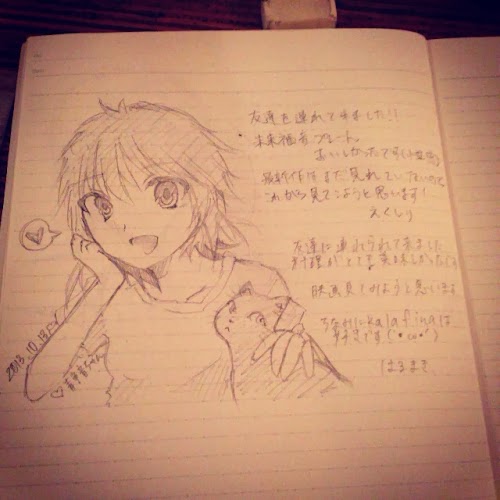 友達を連れて来ました!!
未来福音プレート。
おいしかったです
最新作はまだ見れていないので
これから見てこようと思います!
えくしり
友達に連れてられて来ました
料理がとても美味しかった
映画見てみようと思います
ちなみにkalafinaは
好きです!(´・ω・`)
はるまき
2013.10.13